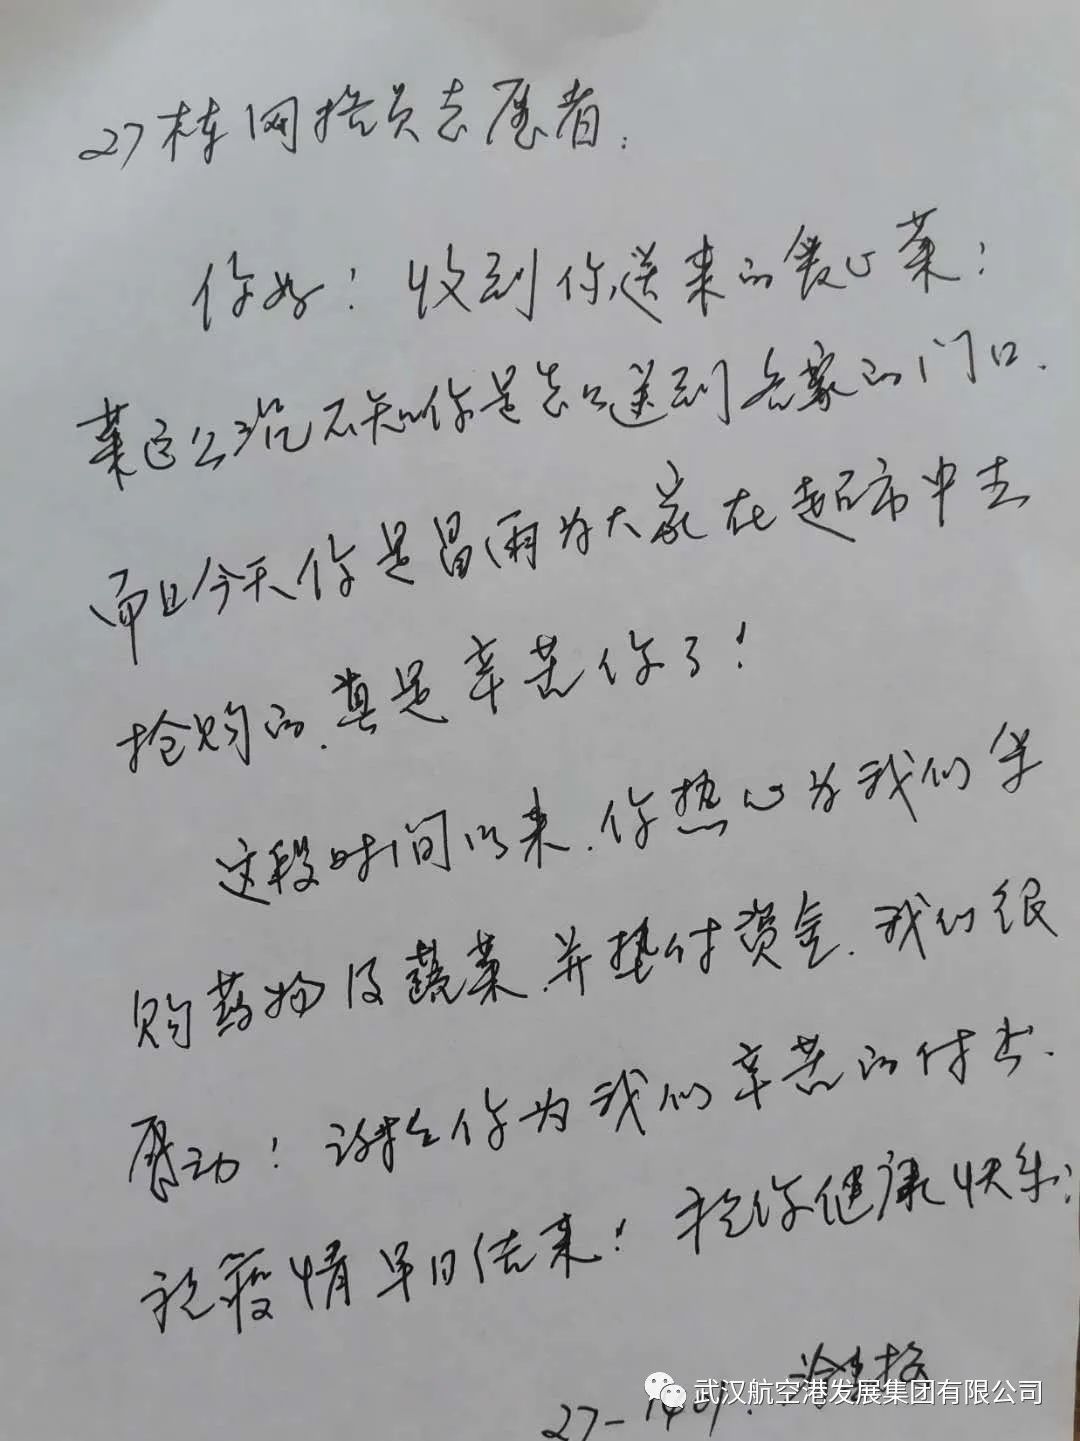 27栋网格员志愿者:
你好!收到你送来的爱心菜!
菜这么沉不知你是怎么送到各家的门口.
而且今天你是冒雨为大家在超市中去
抢购的.真是辛苦你了!
这段时间以来.你热心为我们采
购药物及蔬菜.并垫付资金.我们很
感动!谢谢你为我们辛苦的付出.
祝疫情早日结束!祝你健康快乐!
27-1401.
武汉航空港发展集团有限公司